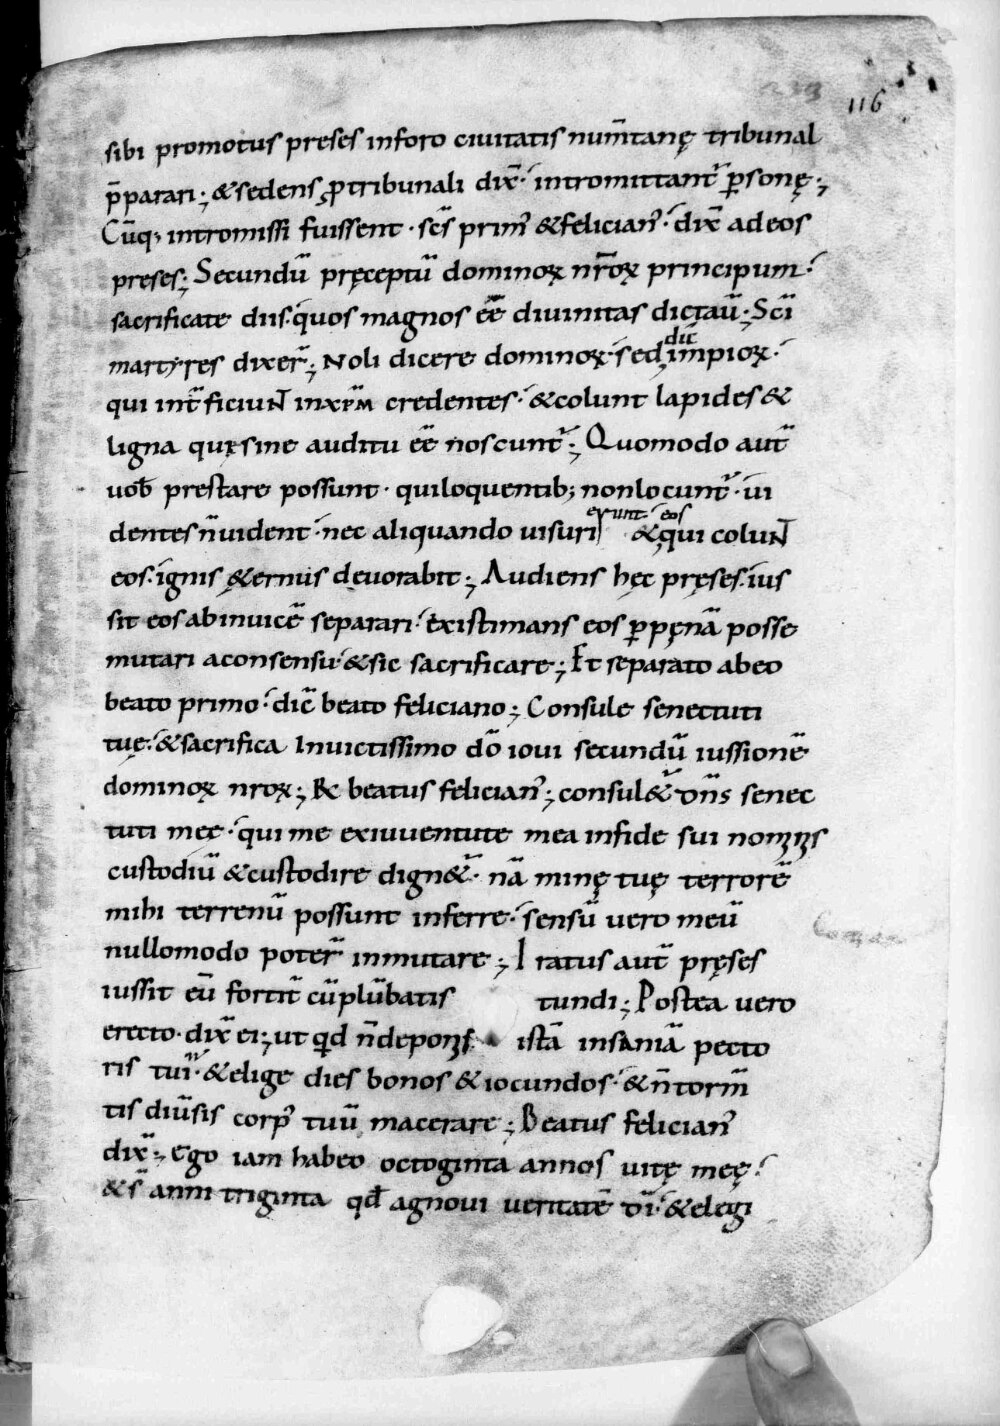 116
sibi promotus preses inforo ciuitatis num̄tanę tribunal
p̄parari ; & sedens ꝓtribunali dix̄ · intromittant᷑ ꝑsonę ;
Cūq; intromissi fuissent · sc̄s prim᾽ & felician᾽ · dix̄ adeos
preses ; Secundū pręceptū dominoꝝ nr̄oꝝ principum ·
sacrificate diis · quos magnos eē̄ diuinitas dictaū · Sc̄i
martyres dixer̄ ; Noli dicere dominoꝝ · sed dic̄ impioꝝ ·
qui int̄ficiuNT inxp̄m credentes · & colunt lapides &
ligna quę sine auditu eē noscunt᷑ ; Quomodo aut̄
uob̄ prestare possunt · qui loquentib; non locunt᷑ · ui
dentes n̄ uident · nec aliquando uisuri erunt · eos & qui coluNT
eos · ignis & ermis deuorabit ; Audiens hęc pręses · ius
sit eos abinuicē separari · existimans eos ꝑpęnā posse
mutari aconsensu · & sic sacrificare ; Et separato abeo
beato primo · dic̄ beato feliciano ; Consule senectuti
tuę · & sacrifica Inuictissimo dō ioui secundū iussionē
dominoꝝ nr̄oꝝ ; R̄ beatus felician᾽ ; consul&̄ dn̄s senec
tuti meę · qui me exiuuentute mea infide sui nominis
custodiū & custodire dign&̄ · nā minę tuę terrorē
mihi terrenū possunt inferre · sensū uero meū
nullomodo poter̄ inmutare ; Iratus aut̄ pręses
iussit eū fortit̄ cū plūbatis tundi ; Postea uero
erecto · dix̄ ei ; ut qd̄ n̄ deponis istā insaniā pecto
ris tui · & elige dies bonos & iocundos · & n̄ torm̄
tis diūsis corp᾽ tuū macerare ; Beatus felician᾽
dix̄ ; Ego iam habeo octoginta annos uitę meę ·
& s̄ anni triginta qd̄ agnoui ueritatē dī · & elegi